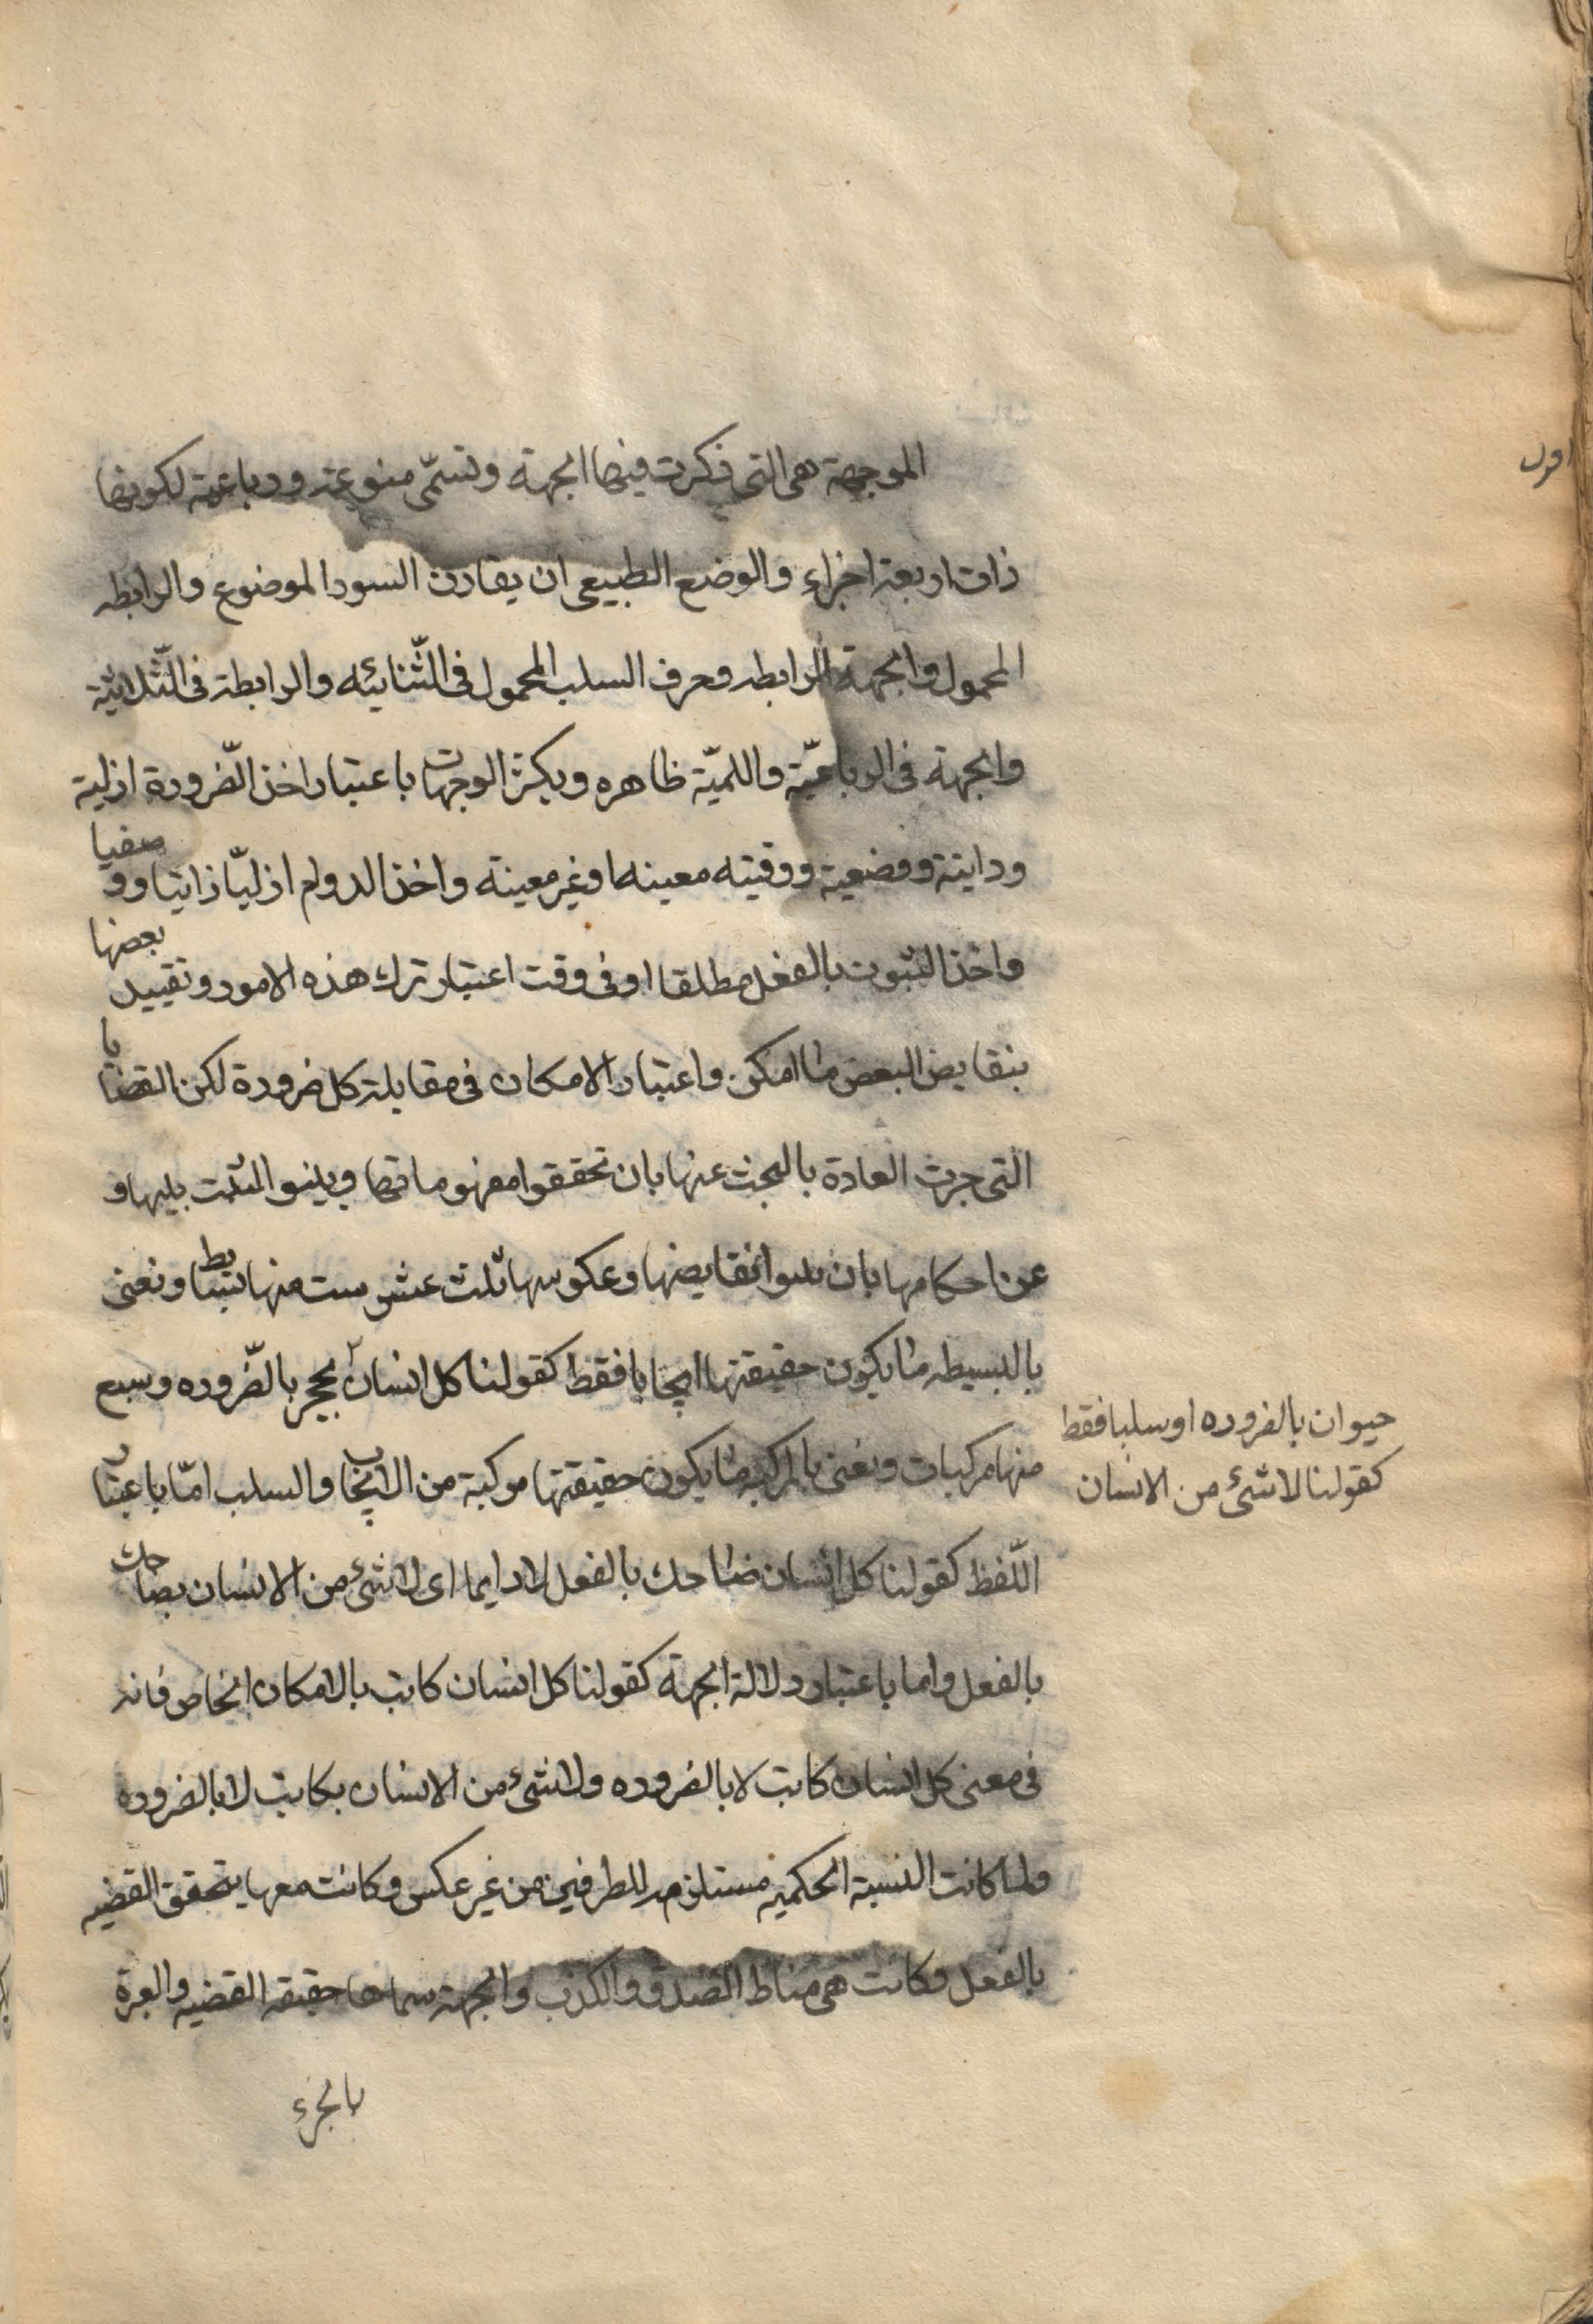 الموجهة هى التى ذكرت فيها الجهة وتسمّى منوعة ورباعية لكونها
ذات اربعة اجزاء والوضع الطبيعى ان يقارن السور الموضوع والرابطه
المحمول والجهة الرابطه وحرف السلب المحمول فى الثّنائيه والرابطة فى الثّلاثيّة
والجهة فى الرباعيّة واللميّة ظاهره ويكثر الوجهات باعتبار اخذ الضّرورة ازلية
وذاتية ووضعية ووقتيه معينه اوغير معينة واخذ الدوام ازليّا ذاتيا ووصفيا
واخذ الثبوت بالفعل مطلقا او فى وقت اعتبار ترك هذه الامور وتقييد بعضها
بنقايض البعض ما امكن واعتبار الامكان فى مقابلة كل ضرورة لكن القضايا
التى جرت العادة بالبحث عنها بان تحققوا مفهوماتها ويبينوا النسب بينها و
عن احكامها بان نقايضها وعكوسها ثلث عشر ست منها بسايط ونعنى
بالبسيطه ما يكون حقيقتها ايجابا فقط كقولنا كل انسان بحجر بالضّروره وسبع
حيوان بالضروره او سلبا فقط
كقولنا لا شئ من الانسان
منها مركبات ونعنى بالمركبه ما يكون حقيقتها مركبة من الايجاب والسلب امّا باعتبار
اللّفظ كقولنا كل انسان ضاحك بالفعل لا دايما اى لا شئ من الانسان بضاحك
بالفعل واما باعتبار دلالة الجهة كقولنا كل انسان كاتب بالامكان الخاص فانه
فى معنى كل انسان كاتب لا بالضروره ولا شئ من الانسان بكاتب لا بالضروره
ولما كانت النسبة الحكميه مستلزمه للطرفين من غير عكس وكانت معها يتحقق القضيه
بالفعل وكانت هى مناط الصدق والكذب والجهة حقيقه القضيه والعبرة
بالجزء